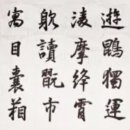 遊鵾獨運
凌摩絳霄
耽讀翫市
寓目囊箱